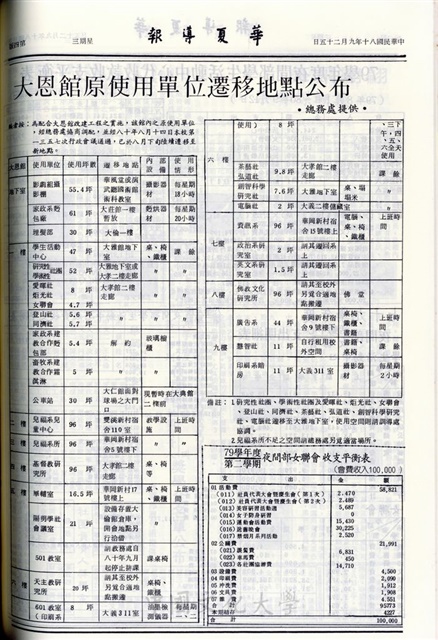 中華民國八十年九月二十五日
華夏導報
星期三
大恩館原使用單位遷移地點公布
•總務處提供•
編者按：為配合大恩館改建工程之實施，該館內之原使用單位
，經總務處協商調配，並經八十年八月十四日本校第
一三五七次行政會議通過，已於八月下旬陸續遷移至
新地點。
大恩館 使用單位 使用坪數 遷移地點 內部設備 使用情形
地下室 影劇組攝影棚 55.4坪 攝影器材 每星期18小時
家政系麪包廠 61坪 大莊館一樓暫放 麪烘器材 每星期20小時
理髮部 30坪 大倫一樓
學生活動中心 47坪 大雅館地下室 桌、椅、鐵櫃 課餘
52坪 大雅地下室或大孝二樓走廊
愛暉社 炬光社 8坪 大孝館二樓走廊
女聯會 4.7坪
登山社 5.6坪
同濟社 5.7坪
家政系建教合作麪包部 5.4坪 解約 玻璃櫥櫃
畜牧系建教合作霜淇淋 5坪
公車站 30坪 大仁館面對球場之大門口 現暫時在大典館二樓前
兒福系兒童中心 96坪 雙溪新村館舍110室 教學設施 上班時間
兒福系所 96坪 華岡新村館舍5號樓下
基督教研究所 96坪 大孝館二樓走廊 桌、椅等
華輔室 16.5坪 華岡新村17號樓上 桌、椅、鐵櫃 上班時間
陽明學社會議室 21坪 設備存置大倫館倉庫，開會地點另行洽借
501教室 請教務處自八十年九月起停止排課 課桌椅
天主教研究所 20坪 請其至校外另覓合適地點搬遷 桌椅、鐵櫃
601教室（印刷系 8坪 大義311室 每星期一、二
使用） 8坪 、三下午，四、五、六全天使用
六樓 茶藝社 弘道社 9.8坪 大孝館二樓走廊 課餘
創智科學研究社 7.6坪 大雅地下室 桌、塌塌米
電腦社 2坪 大義二樓儲藏室
七樓 資訊系 96坪 華岡新村宿舍15號樓上 電腦、桌、椅、鐵櫃 上班時間
政治系研究室 2坪 請其遷回系上
英文系研究室 1.5坪 請其遷回系上
八樓 佛教文化研究所 96坪 請其至校外另覓合適地點搬遷 佛堂
九樓 廣告系 44坪 華岡新村宿舍9號樓下 桌椅、鐵櫃、書籍 上班時間
慧智社 11坪 自行租用校外空間 書籍、桌椅 課餘
印刷系暗房 11坪 大義311室 攝影器材 每星期2小時
備註：1.研究性社團、學術性社團及愛暉社、炬光社、女聯會
、登山社、同濟社、茶藝社、弘道社、創智科學研究
社、電腦社遷移至大雅地下室，使用空間則請訓導處
協調。
2.兒福系所不足之空間請總務處另覓適當場所。
79學年度第二學期 夜間部女聯會收支平衡表
（會費收入100,000）
支出 金額
01 活動費 58,821
（011）社員代表大會暨慶生會（第1次） 2,470
（012）社員代表大會暨慶生會（第2次） 2,489
（013）美容研習活動週 5,687
（014）女子防身研習
（015）運動會活動費 15,430
（016）送舊晚會 30,225
（017） 2,520
02 公關費 21,991
（021）議餐費 6,831
（022）車馬費 450
（023）各社團協辦費 14,710
03 設備費 4,500
04 印刷費 2,099
05 沖洗費 1,913
06 文具費 1,908
07 雜費 4,551
合計 95773
本期結存 4227
合計 100,000